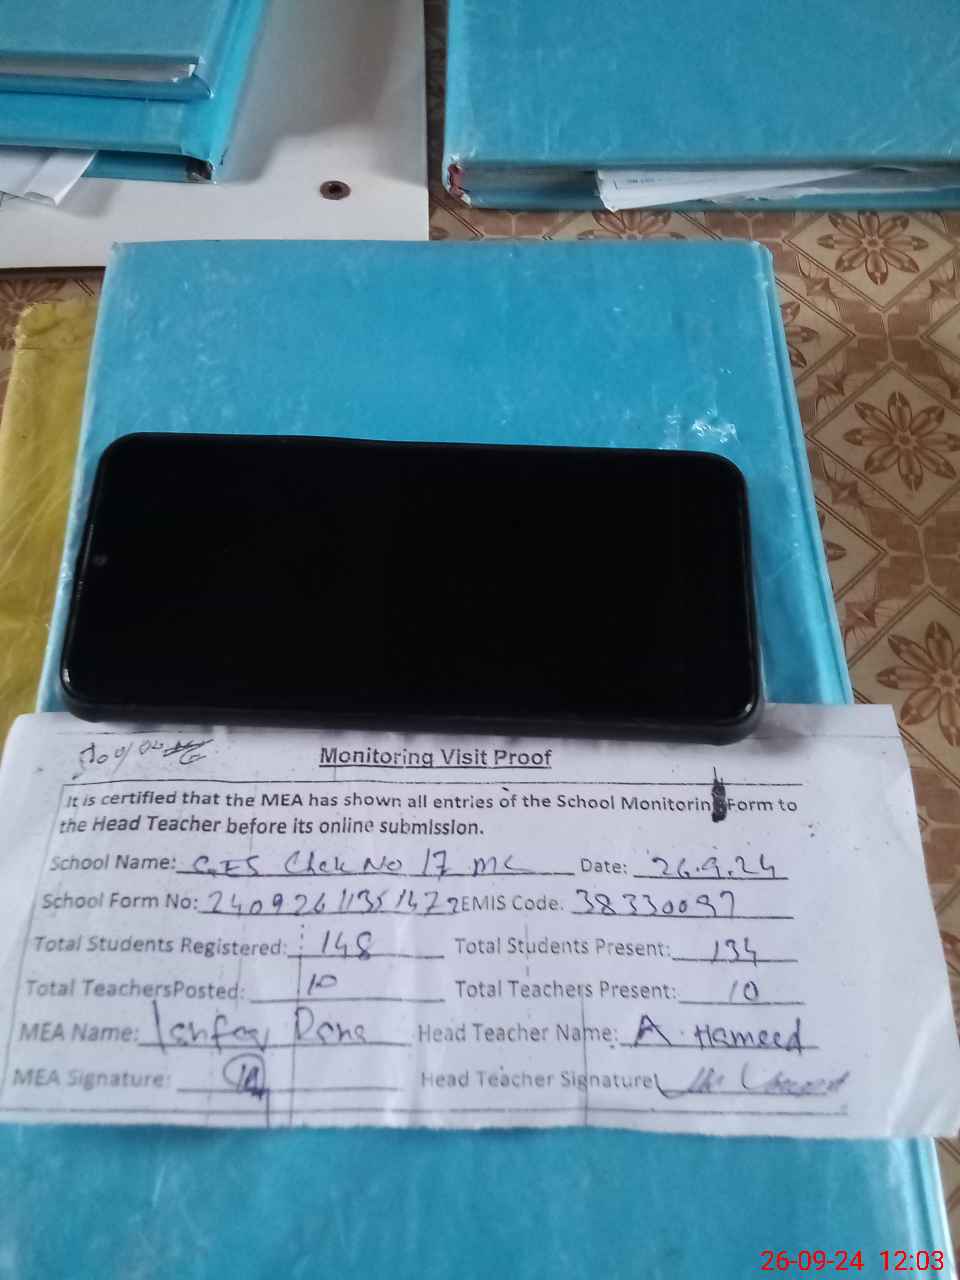 Monitoring Visit Proof
It is certified that the MEA has shown all entries of the School Monitoring Form to
the Head Teacher before its online submission.
School Name: GES Chak No 17 MC Date: 26.9.24
School Form No: EMIS Code: 38330097
Total Students Registered: 148 Total Students Present: 134
Total TeachersPosted: 10 Total Teachers Present: 10
MEA Name: Ishfaq Rana Head Teacher Name: A. Hameed
MEA Signature: Head Teacher Signature
26-09-24 12:03